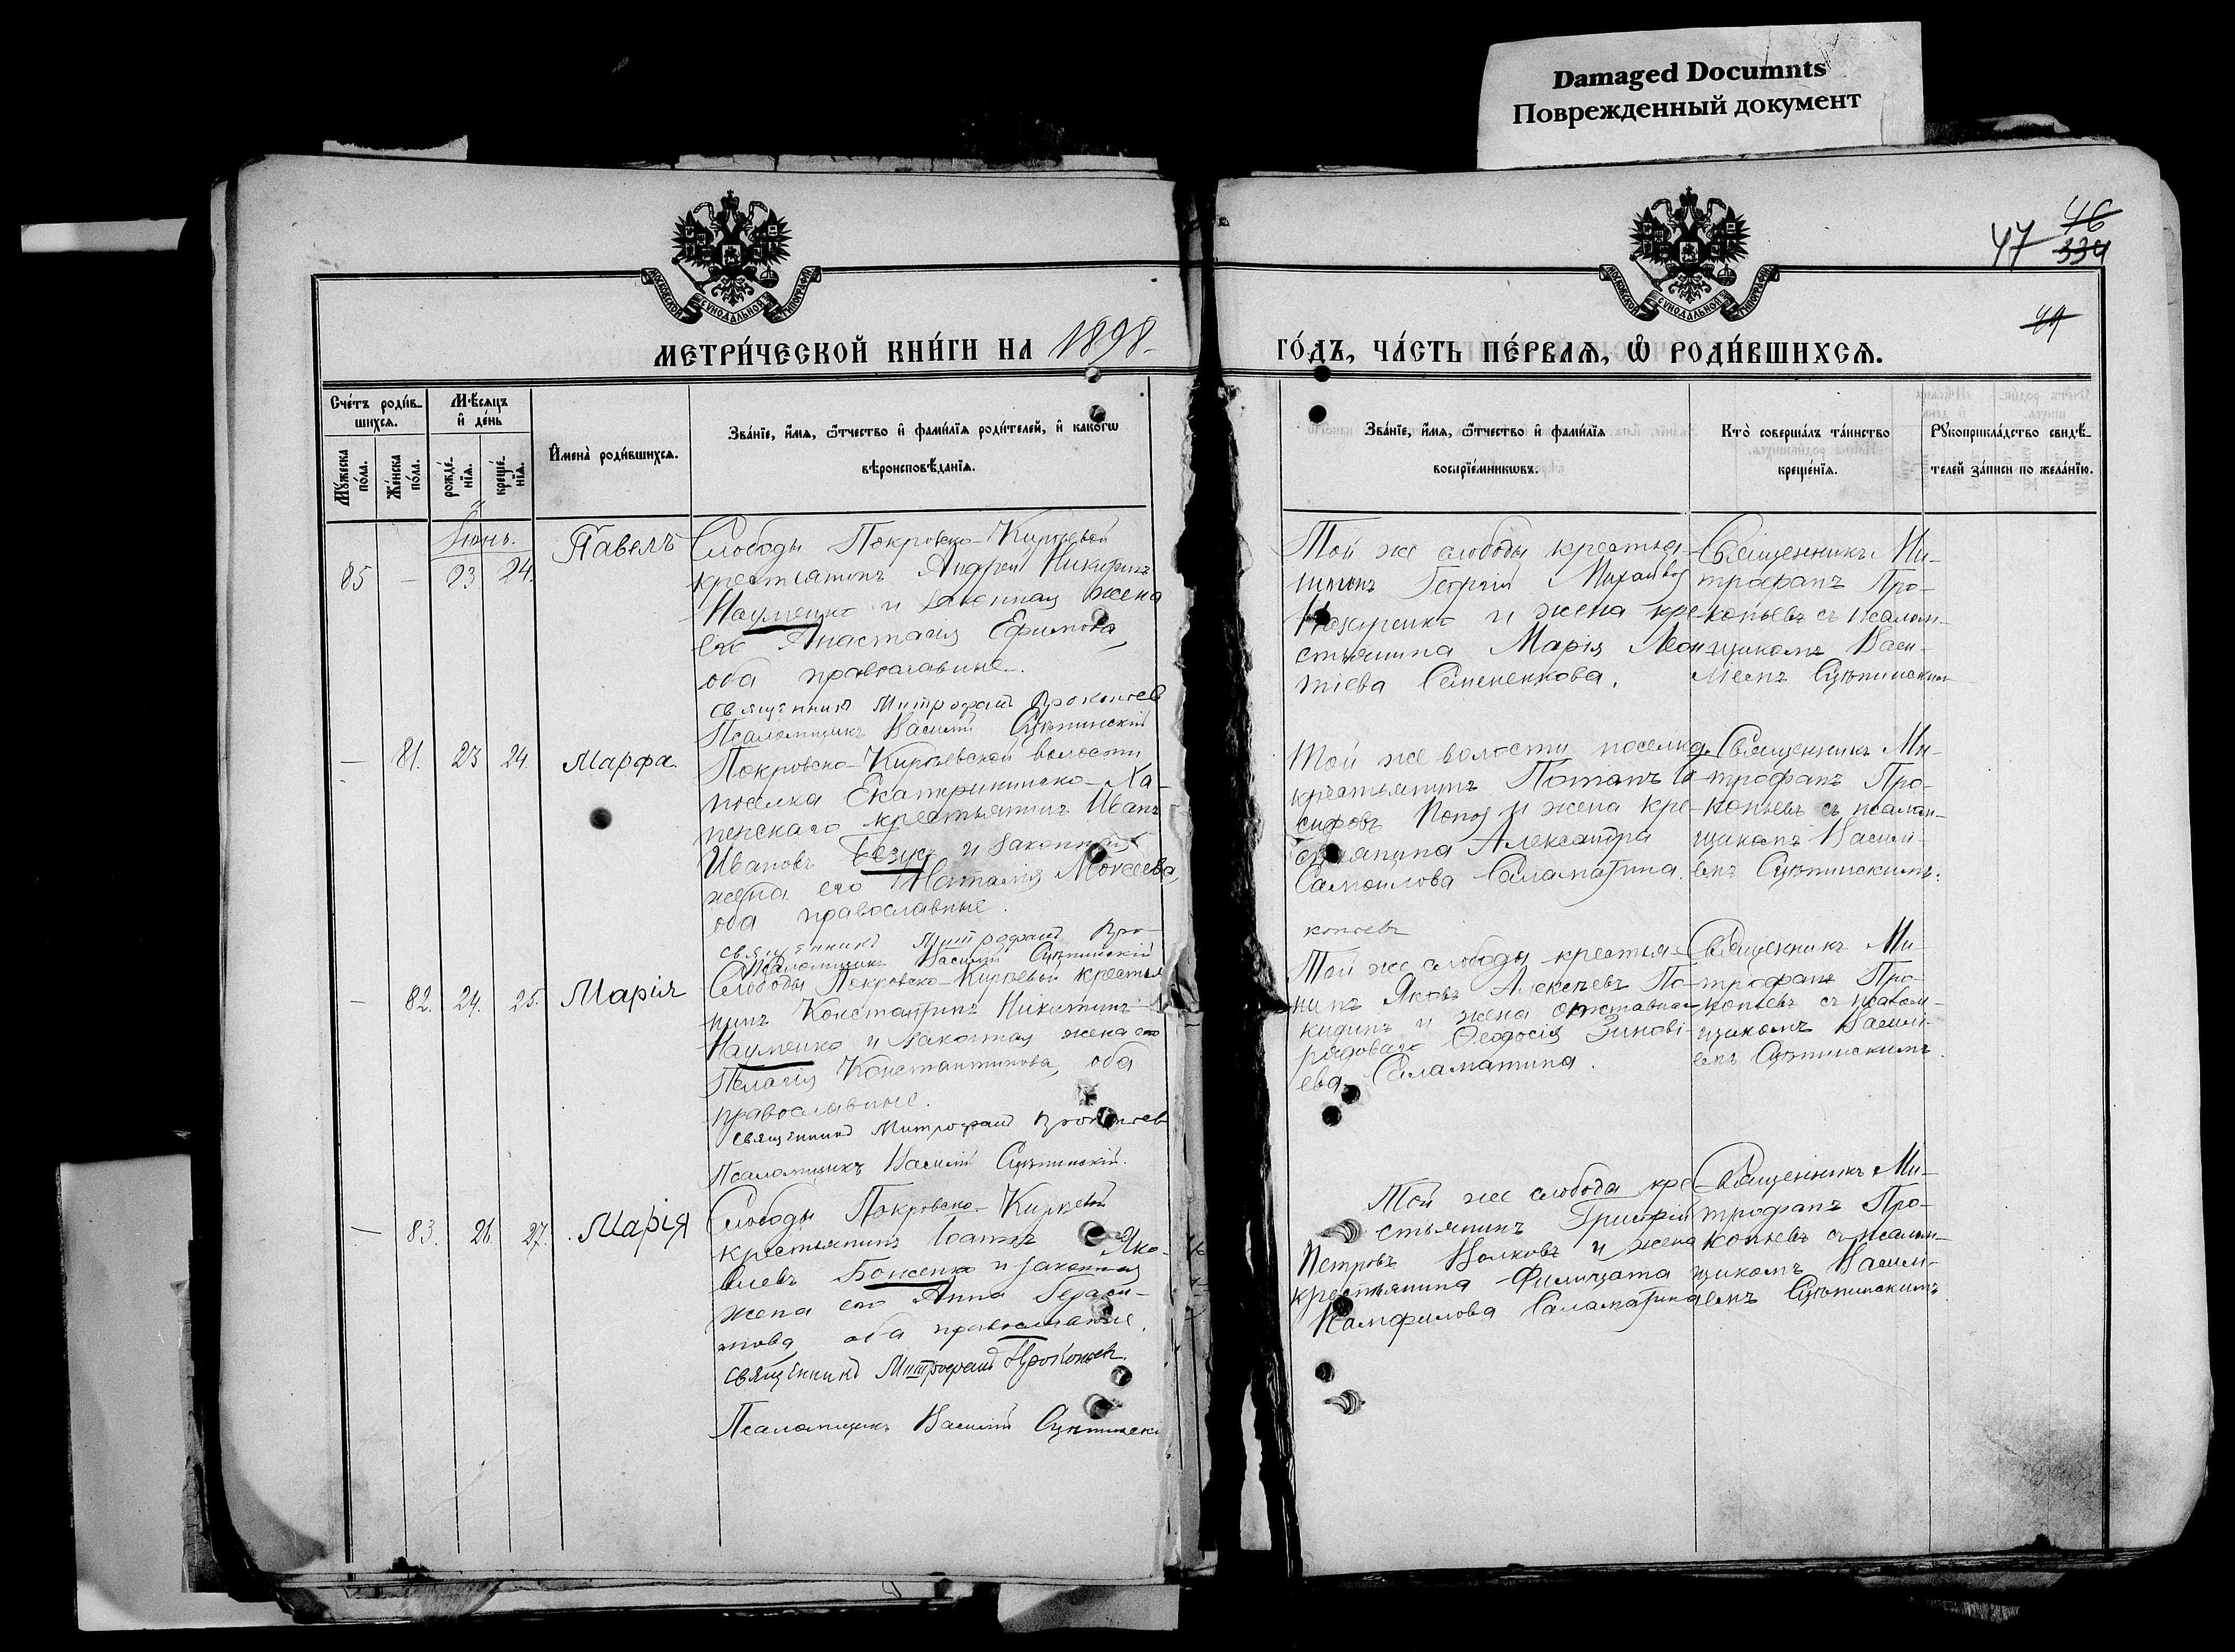 Damaged Documnts
Поврежденный документ
46
47 334
49
МОСКОВСКОЙ СѴНОДАЛЬНОЙ ТИПОГРАФІИ
МОСКОВСКОЙ СѴНОДАЛЬНОЙ ТИПОГРАФІИ
МЕТРИ́ЧЕСКОЙ КНИ́ГИ НА 1898
ГО́ДЪ, ЧА́СТЬ ПЕ́РВАѦ, Ѡ҆ РОДИ́ВШИХСѦ.
Сче́тъ роди́в-
шихсѧ.
Мꙋ́жеска по́ла.
Же́нска по́ла.
Мѣ́сѧцъ и҆ де́нь
рожде́-
нїѧ.
креще́-
нїѧ.
И҆мена̀ роди́вшихсѧ.
Зва́нїе, и҆́мѧ, ѻ҆́тчество и҆ фами́лїѧ роди́телей, и҆ како́гѡ
вѣроисповѣ́данїѧ.
Зва́нїе, и҆́мѧ, ѻ҆́тчество и҆ фами́лїѧ
воспрїе́мникѡвъ.
Кто̀ соверша́лъ та́инство
креще́нїѧ.
Рꙋкоприкла́дство свидѣ́-
телей за́писи по жела́нїю.
Іюнь.
85 — 23 24. Павелъ
Слободы Покровско-Киреевой
крестьянинъ Андрей Никитинъ
Науменко и законная жена
его Анастасія Ефимова,
оба православные.
священникъ Митрофанъ Прокопьев
Псаломщикъ Василій
Той же слободы крестья-
нинъ Георгій Михайлов
и жена кре-
стьянина Марія Леон-
тіева Семененкова.
Священникъ Ми-
трофанъ Про-
копьевъ съ псалом-
щикомъ Васи-
ліемъ
— 81. 23 24. Марфа.
Покровско-Киреевской волости
поселка Екатериниско-Ха-
пенскаго крестьянинъ Иванъ
Ивановъ Безусъ и законная
жена его Наталія Моисеева,
оба православные.
священникъ Митрофанъ Про-
копьевъ
Псаломщикъ Василій
Той же волости поселка
крестьянинъ Потапъ Іо-
сифовъ Попов и жена кре-
стьянина Александра
Самоилова Саламатина.
Священникъ Ми-
трофанъ Про-
копьевъ съ псалом-
щикомъ Васили-
емъ
— 82. 24. 25. Марія
Слободы Покровско-Киреевой крестья-
нинъ Константинъ Никитинъ
Науменко и законная жена его
Пелагія Константинова, оба
православные.
священникъ Митрофанъ Прокопьев
Псаломщикъ Василій
Той же слободы крестья-
нинъ Яковъ Алексѣевъ По-
кидинъ и жена отставнаго
рядоваго Ѳеодосія Зинові-
ева Саламатина.
Священникъ Ми-
трофанъ Про-
копьевъ съ псалом-
щикомъ Васили-
емъ
— 83. 26. 27. Марія
Слободы Покровско-Киреевой
крестьянинъ Іоаннъ Яко-
влевъ Боженко и законная
жена его Анна Гераси-
мова оба православные.
священникъ Митрофанъ Прокопьев.
Псаломщикъ Василій
Той же слободы кре-
стьянинъ Григорій
Петровъ Волковъ и жена
крестьянина Филицата
Памфилова Саламатина
Священникъ Ми-
трофанъ Про-
копьевъ съ псалом-
щикомъ Васили-
емъ